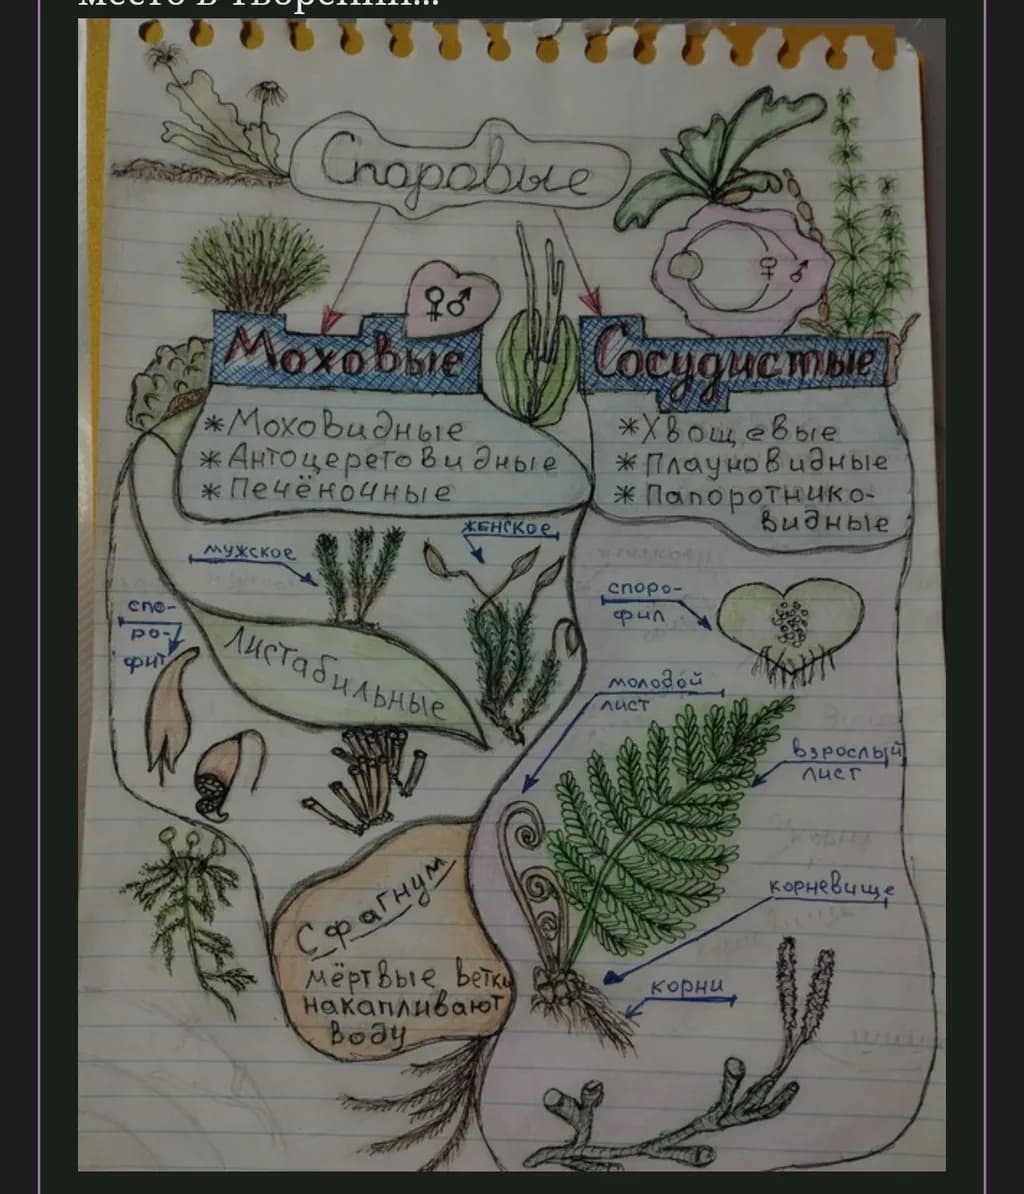 место в творении...
Споровые
Моховые
Сосудистые
*Моховидные
*Антоцеротовидные
*Печёночные
*Хвощевые
*Плауновидные
*Папоротнико-
видные
мужское
женское
спо-
ро-
фит
Листабильные
споро-
фил
молодой
лист
взрослый
лист
корневище
корни
Сфагнум
мёртвые ветки
накапливают
воду